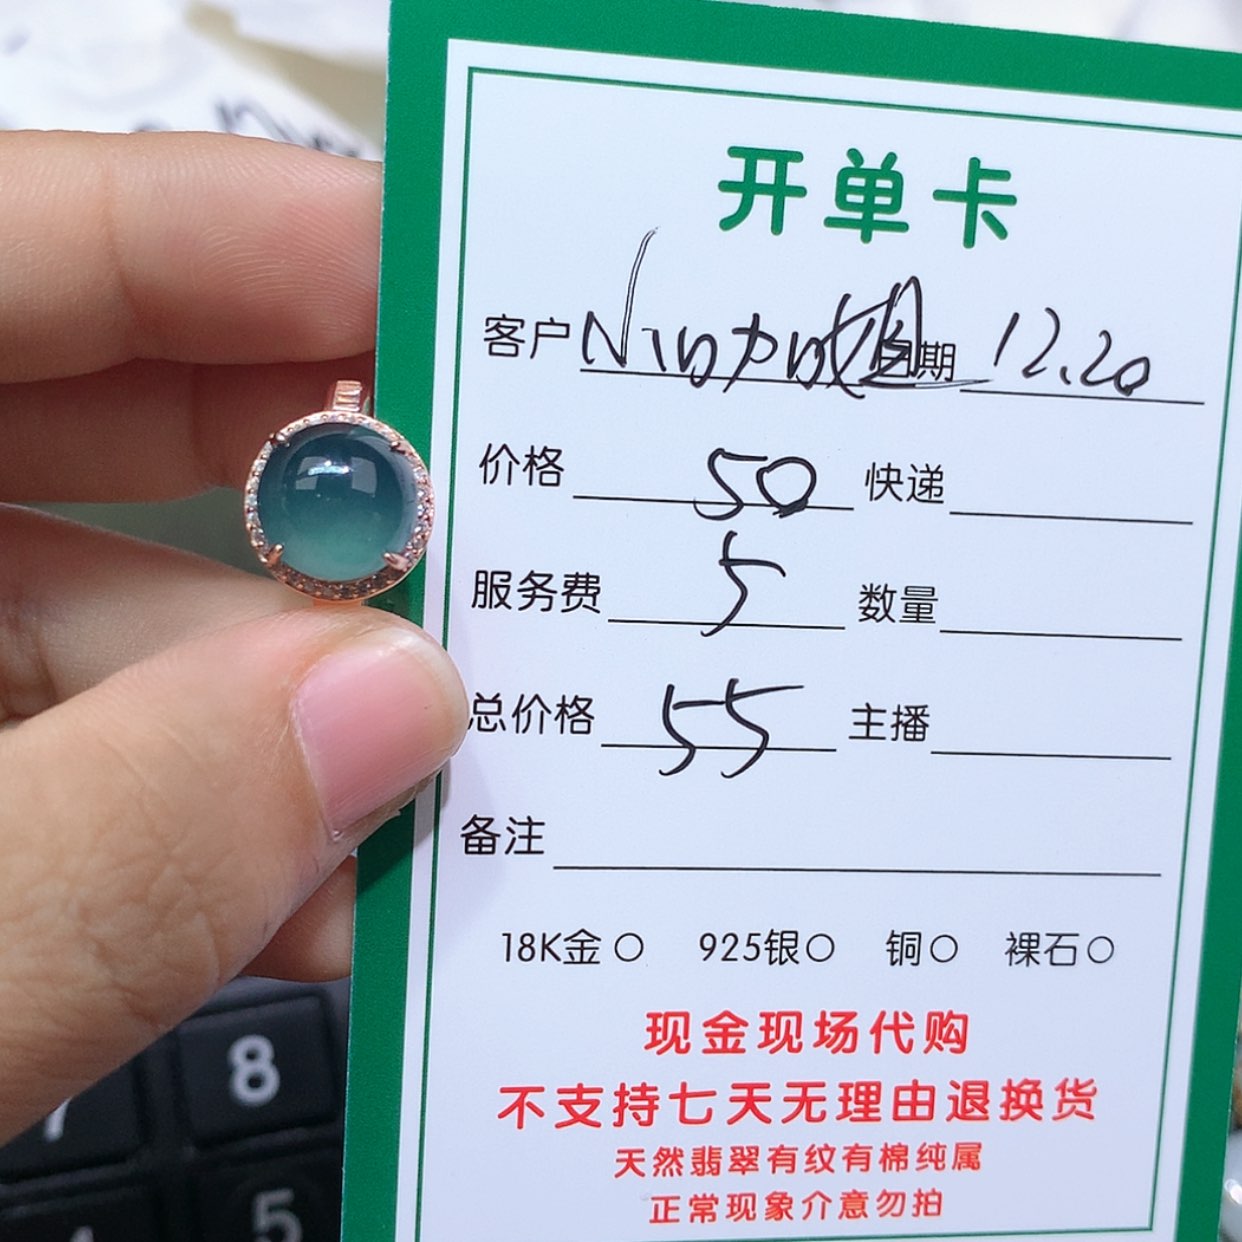 开单卡
客户 期 12.20
价格 50 快递
服务费 5 数量
总价格 55 主播
备注
18K金○ 925银○ 铜○ 裸石○
现金现场代购
不支持七天无理由退换货
天然翡翠有纹有棉纯属
正常现象介意勿拍
8
5